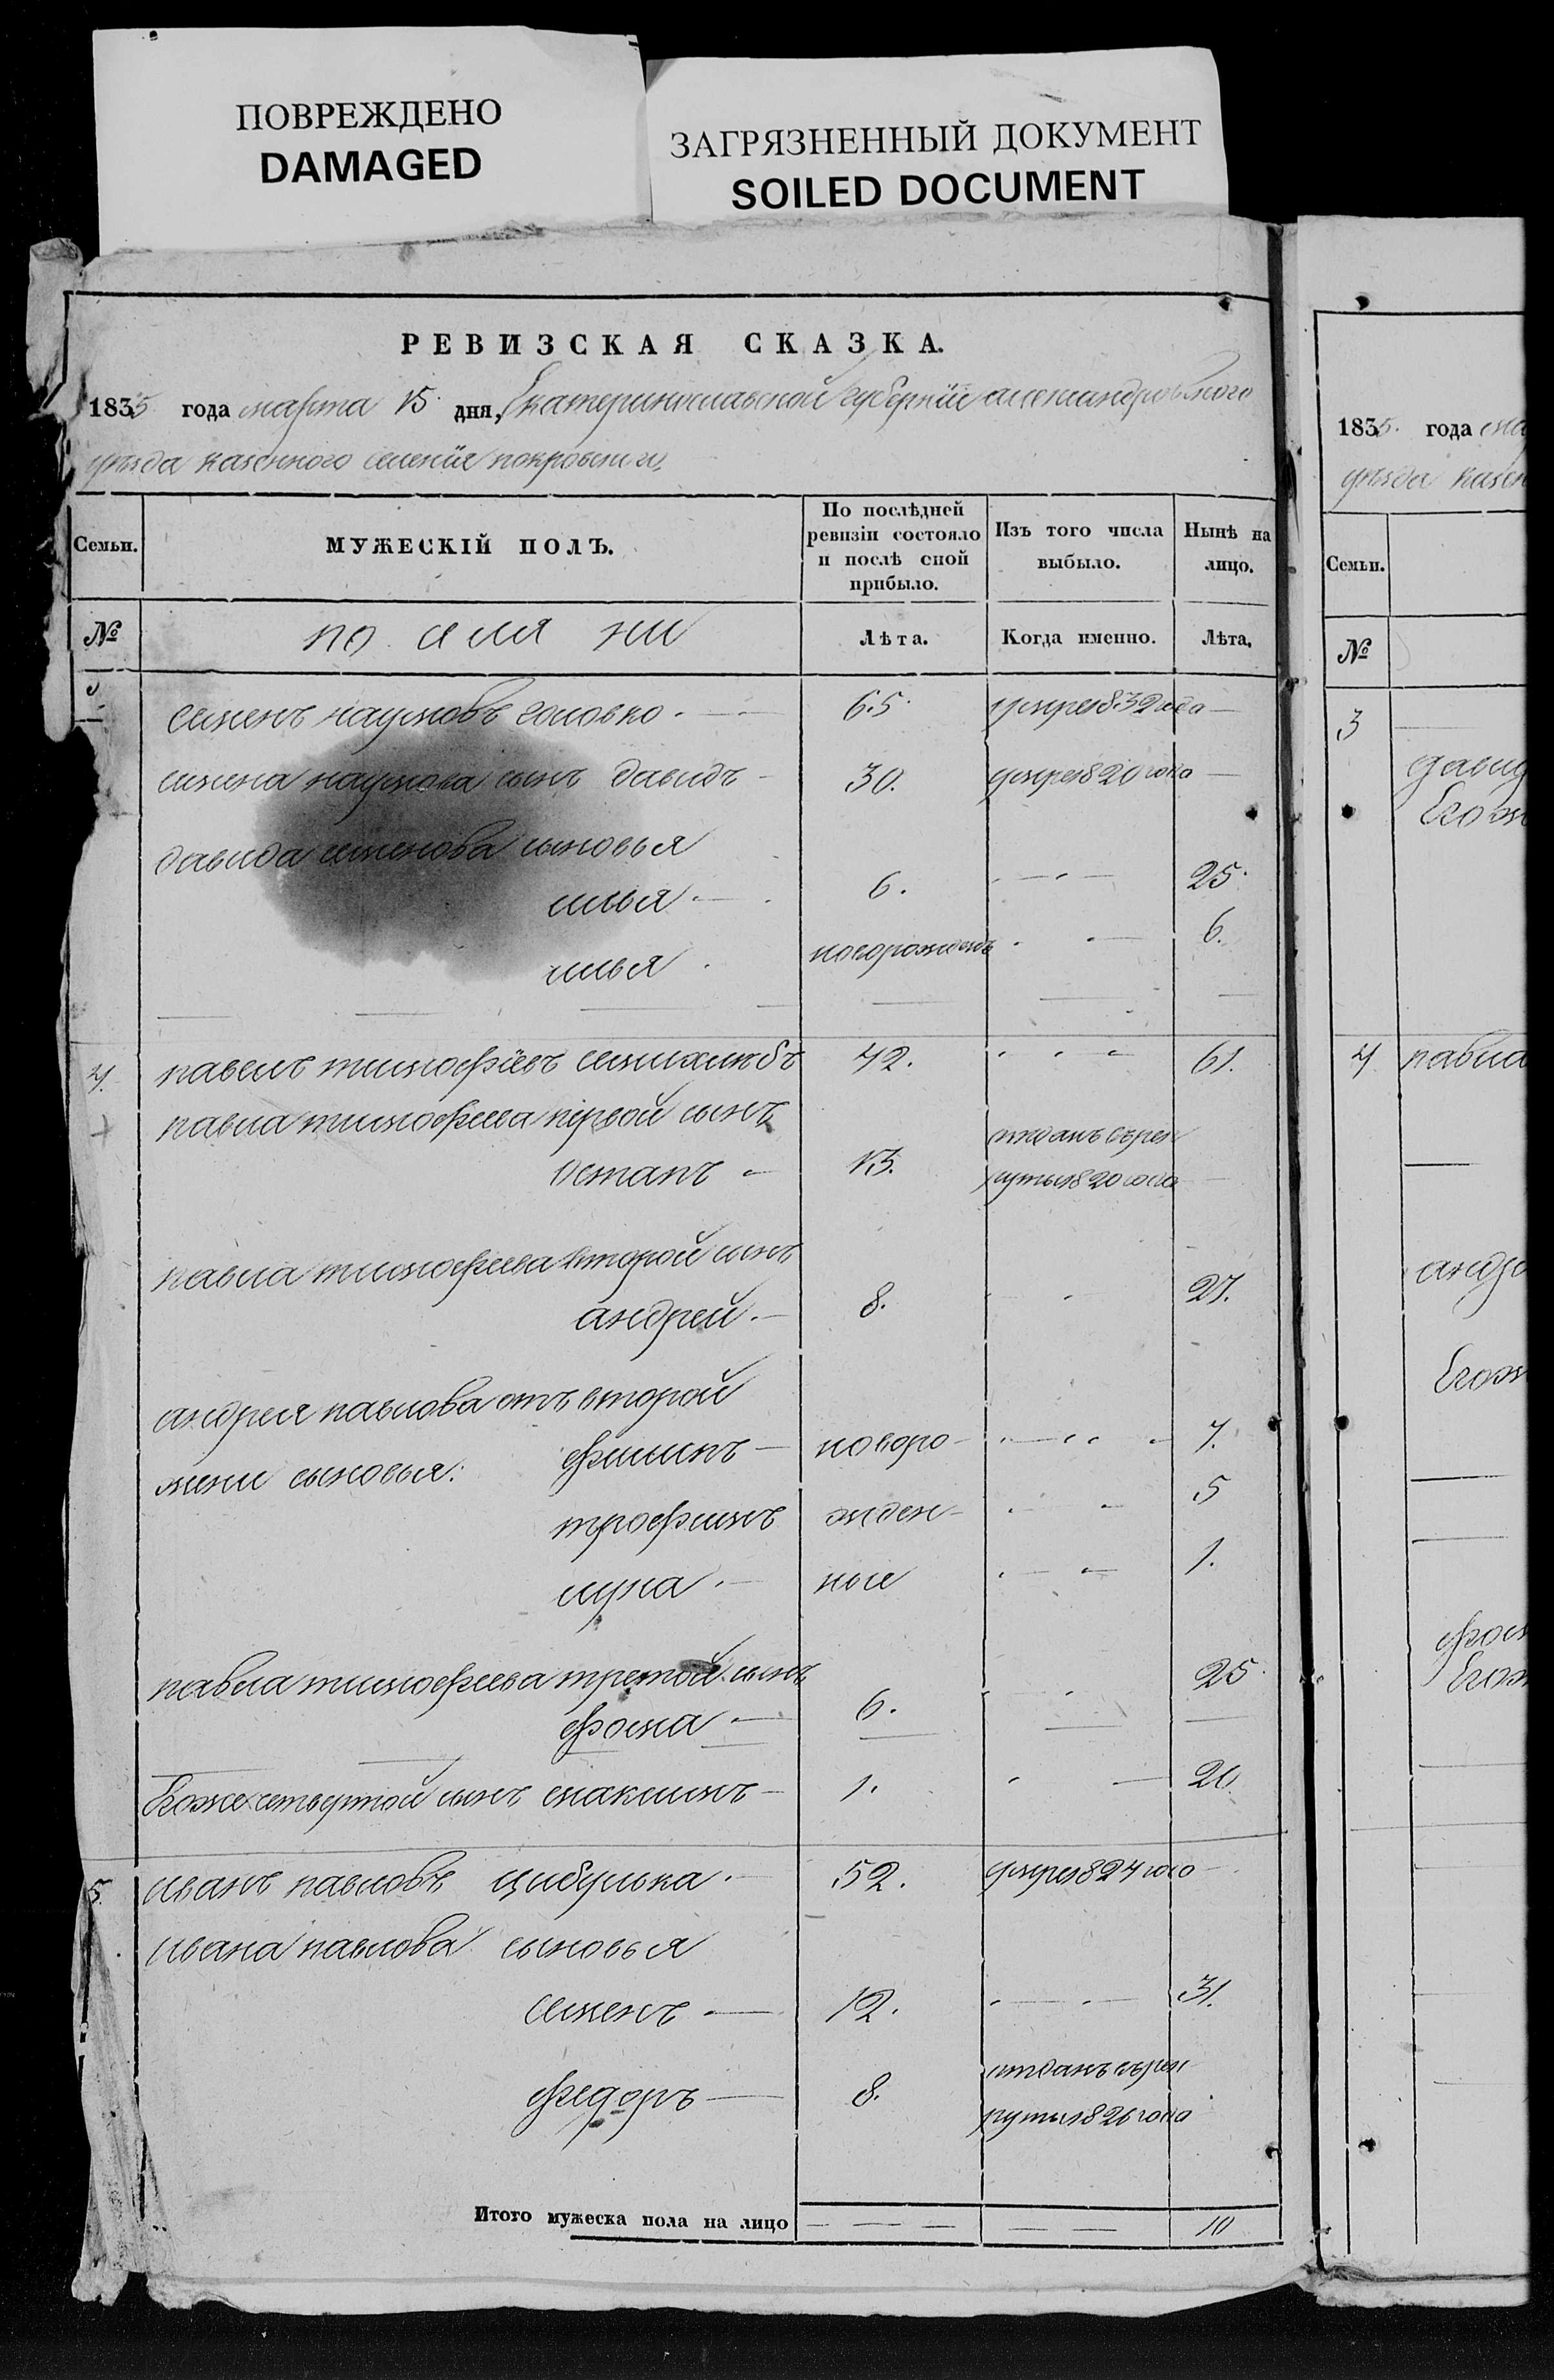 ПОВРЕЖДЕНО
DAMAGED
ЗАГРЯЗНЕННЫЙ ДОКУМЕНТ
SOILED DOCUMENT
РЕВИЗСКАЯ СКАЗКА.
1835 года марта 15 дня, Екатеринославской губернїи александровского
уѣзда казенного селенїя покровски
Семьи.
МУЖЕСКІЙ ПОЛЪ.
По послѣдней ревизіи состояло и послѣ сной прибыло.
Изъ того числа выбыло.
Нынѣ на лицо.
№
по имя ни
Лѣта.
Когда именно.
Лѣта.
3
семенъ наумовъ головко 65 умре 832 года
семена наумова сынъ давидъ 30. умре 820 года
давида семенова сыновья
илья 6. 25.
илья новорожденъ 6.
4. павелъ тимофѣевъ 42. 61.
павла тимофеева первой сынъ
остапъ 13. отданъ въ рек
руты 820 года
павла тимофеева второй сынъ
андрей 8. 27.
андрея павлова отъ второй
жени сыновья: филипъ новоро 7.
трофимъ жден 5
лука ные 1.
павла тимофеева третой сынъ
фома 6. 25
Егоже четвертой сынъ макимъ 1. 20
5. иванъ павловъ цибулька 52. умре 824 года
ивана павлова сыновья
семенъ 12. 31.
федоръ 8. отданъ въ рек
руты 826 года
Итого мужеска пола на лицо 10
1835. года ма
уѣзда казен
Семьи.
№
3
давид
Егож
4 павла
андр
Егож
фом
Егож